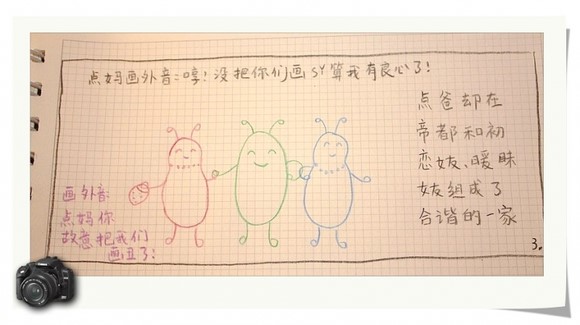 点妈画外音:哼!没把你们画SY算我有良心了!
点爸却在
帝都和初
恋妏、暧昧
妏组成了
合谐的一家
画外音:
点妈你
故意把我们
画丑了!
3.